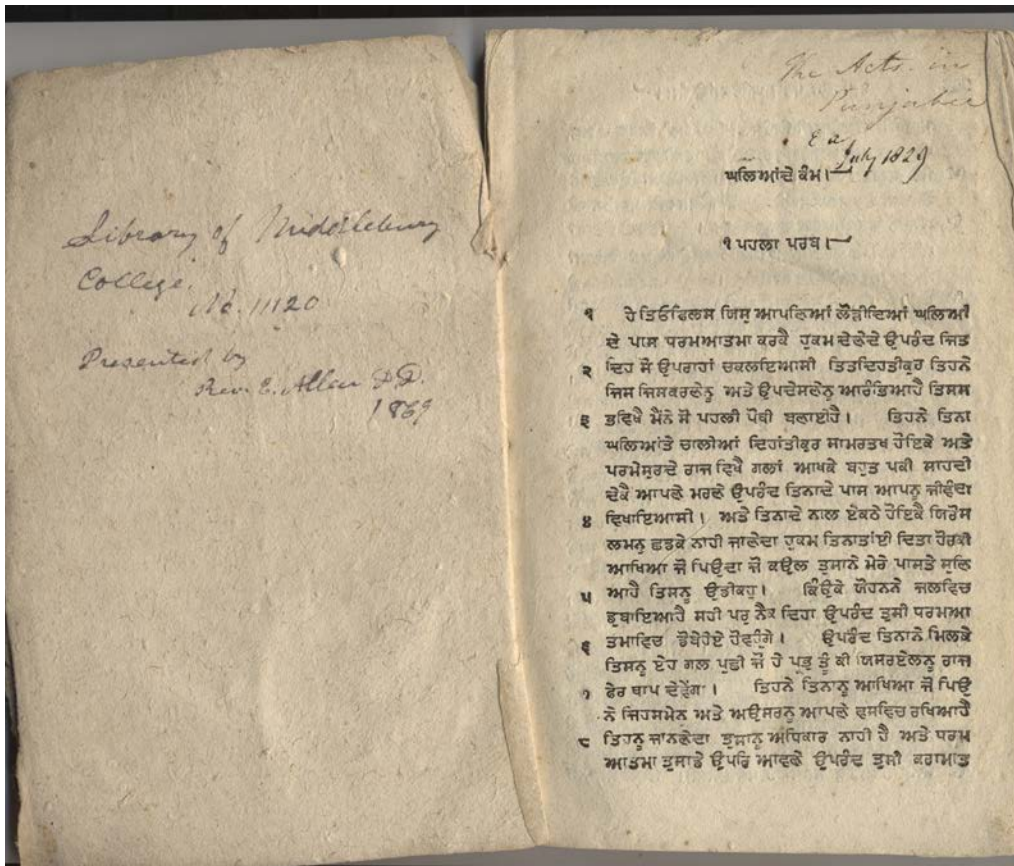 Library of Middlebury
College.
No. 11120
Presented by
Rev. E. Allen D.D.
1869
The Acts. in
Punjabee
July 1829
ਘਲਿਆਂਦੇ ਕੰਮ।
੧ ਪਹਲਾ ਪਰਬ।
੧ ਹੇ ਤਿਓਫਿਲਸ ਯਿਸੁ ਆਪਣਿਆਂ ਲੋੜੀਦਿਆਂ ਘਲਿਆਂ
ਦੇ ਪਾਸ ਧਰਮਆਤਮਾ ਕਰਕੈ ਹੁਕਮ ਦੇਣੇਦੇ ਉਪਰੰਦ ਜਿਤ
੨ ਦਿਹ ਸੋ ਉਪਰਾਹਾਂ ਚਕਲਇਆਸੀ ਤਿਤਦਿਹਤੀਕੁਰ ਤਿਹਨੇ
ਜਿਸ ਜਿਸਕਰਣੇਨੂ ਅਤੇ ਉਪਦੇਸਣੇਨੂ ਆਰੰਭਿਆਹੈ ਤਿਸਸ
੩ ਭਵਿਖੈ ਮੈਂਨੇ ਸੋ ਪਹਲੀ ਪੋਥੀ ਬਣਾਈਹੈ। ਤਿਹਨੇ ਤਿਨਾ
ਘਲਿਆਂਤੇ ਚਾਲੀਆਂ ਦਿਹਾਂਤੀਕੁਰ ਸਾਮਰਤਖ ਹੋਇਕੇ ਅਤੇ
ਪਰਮੇਸੁਰਦੇ ਰਾਜ ਵਿਖੈ ਗਲਾਂ ਆਖਕੇ ਬਹੁਤ ਪਕੀ ਸਾਹਦੀ
ਦੇਕੈ ਆਪਣੇ ਮਰਣੇ ਉਪਰੰਦ ਤਿਨਾਦੇ ਪਾਸ ਆਪਨੂ ਜੀਵੰਦਾ
੪ ਵਿਖਾਇਆਸੀ। ਅਤੇ ਤਿਨਾਦੇ ਨਾਲ ਏਕਠੇ ਹੋਇਕੈ ਯਿਰੋਸ
ਲਮਨੂ ਛਡਕੇ ਨਾਹੀ ਜਾਣੇਦਾ ਹੁਕਮ ਤਿਨਾਤਾਂਈ ਦਿਤਾ ਹੋਰਕੀ
ਆਖਿਆ ਜੋ ਪਿਉਦਾ ਜੋ ਕਉਲ ਤੁਸਾਨੇ ਮੇਰੇ ਪਾਸਤੇ ਸੁਣਿ
੫ ਆਹੈ ਤਿਸਨੂ ਉਡੀਕਹੁ। ਕਿੰਉਕੇ ਯੋਹਨਨੇ ਜਲਵਿਚ
ਡੁਬਾਇਆਹੈ ਸਹੀ ਪਰੁ ਨੈਕ ਦਿਹਾ ਉਪਰੰਦ ਤੁਸੀ ਧਰਮਆ
੬ ਤਮਾਵਿਚ ਡੋਬੇਹੋਏ ਹੋਵਹੁਂਗੇ। ਉਪਰੰਦ ਤਿਨਾਨੇ ਮਿਲਕੇ
ਤਿਸਨੂ ਏਹ ਗਲ ਪੁਛੀ ਜੋ ਹੇ ਪ੍ਰਭੁ ਤੂੰ ਕੀ ਯਿਸਰਏਲਨੂ ਰਾਜ
੭ ਫੇਰ ਥਾਪ ਦੇਵੇਂਗਾ। ਤਿਹਨੇ ਤਿਨਾਨੂ ਆਖਿਆ ਜੋ ਪਿਉ
ਨੇ ਜਿਹਸਮੇਨ ਅਤੇ ਅਉਸਰਨੂ ਆਪਣੇ ਵਸਵਿਚ ਰਖਿਆਹੈ
੮ ਤਿਹਨੂ ਜਾਨਣੇਦਾ ਤੁਸਾਨੂ ਅਧਿਕਾਰ ਨਾਹੀ ਹੈ ਅਤੇ ਧਰਮ
ਆਤਮਾ ਤੁਸਾਡੇ ਉਪਰਿ ਆਵਣੇ ਉਪਰੰਦ ਤੁਸੀ ਕਰਾਮਾਤ